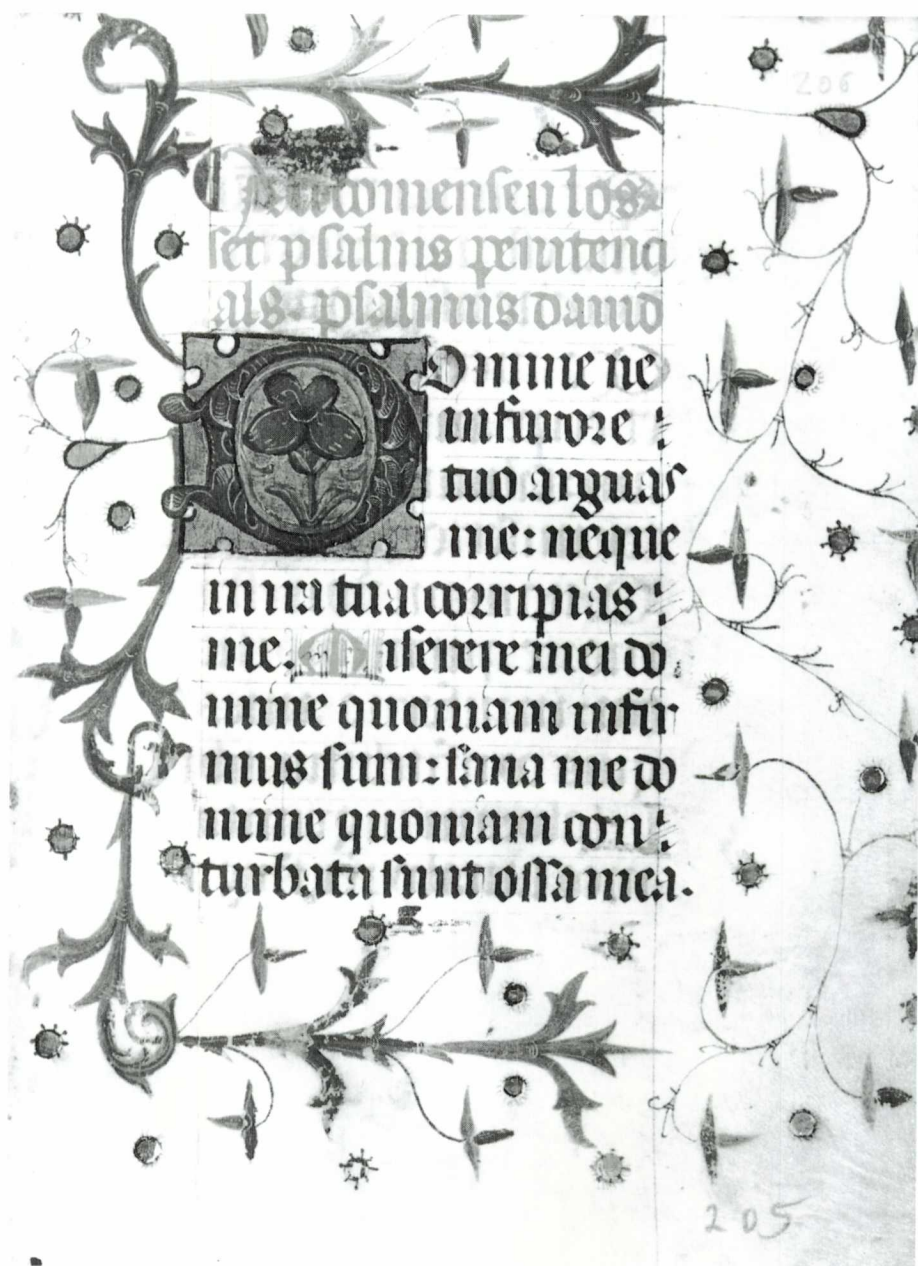 206
Aci comensen los
set psalms penitenci
als. psalmus dauid
Domine ne
in furore :
tuo arguas
me: neque
in ira tua corripias :
me. Miserere mei do
mine quoniam infir
mus sum: sana me do
mine quoniam con :
turbata sunt ossa mea.
205